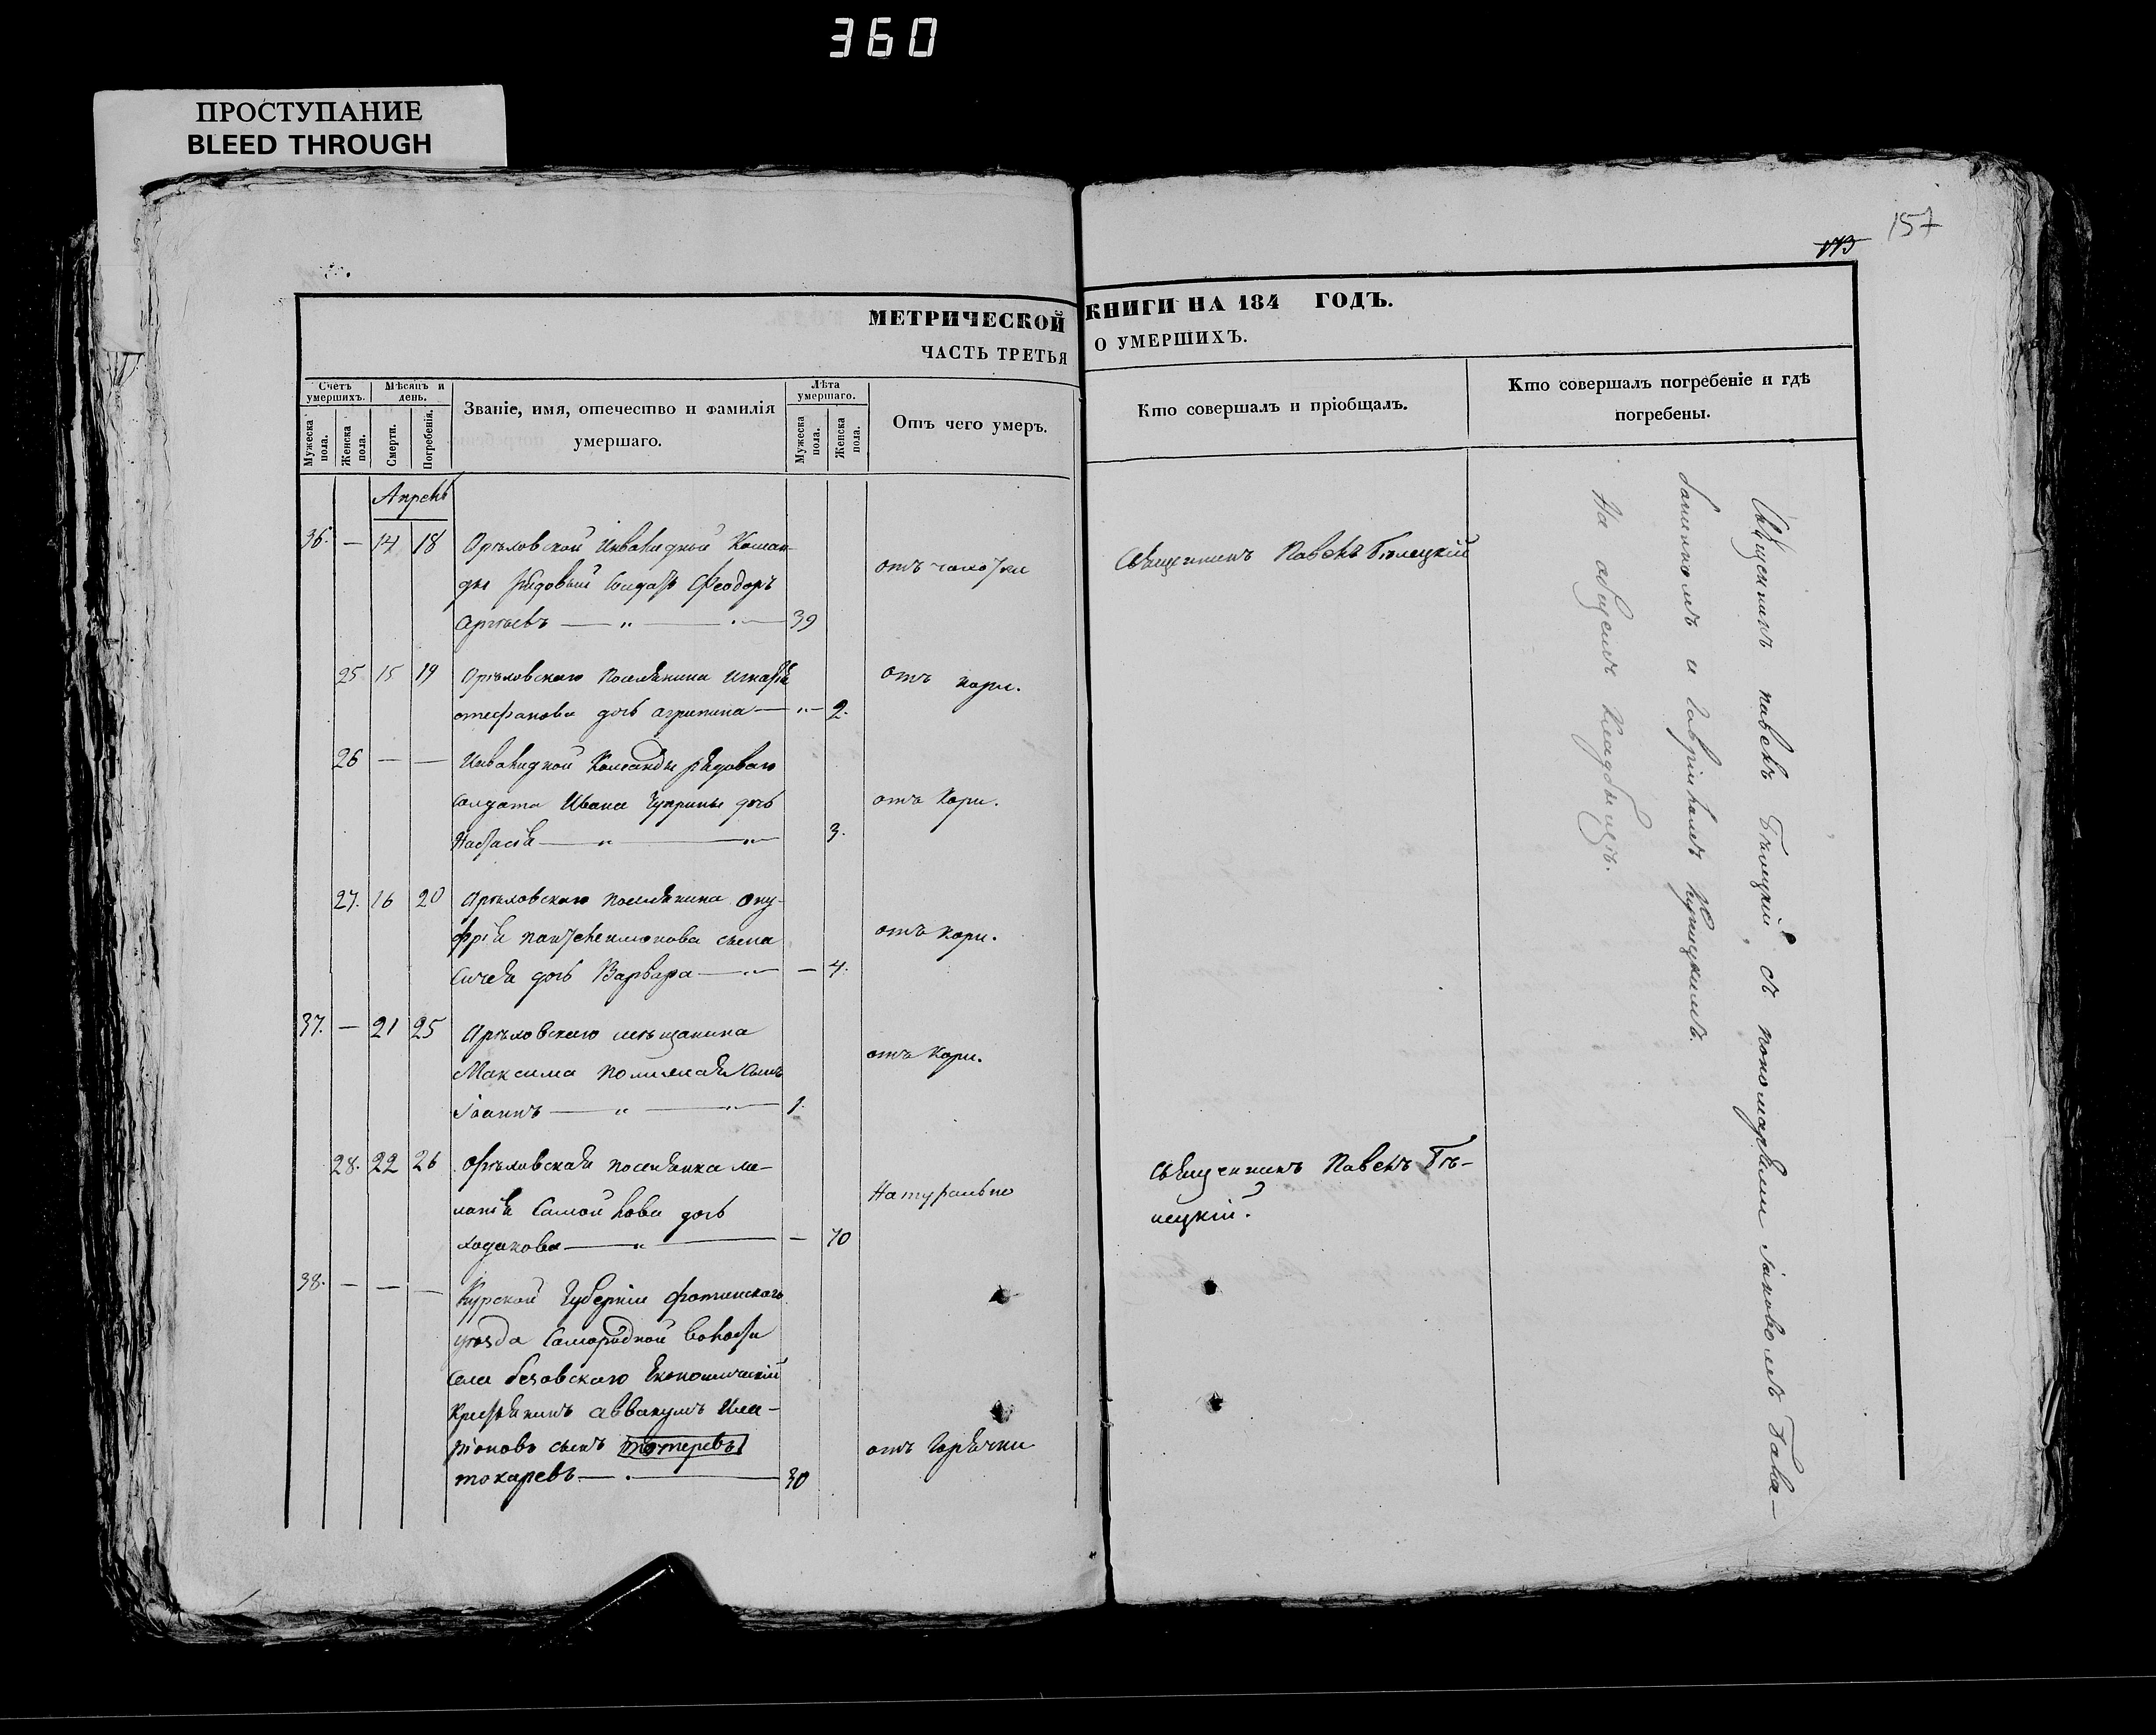 360
ПРОСТУПАНИЕ
BLEED THROUGH
157
МЕТРИЧЕСКОЙ КНИГИ НА 184 ГОДЪ.
ЧАСТЬ ТРЕТЬЯ О УМЕРШИХЪ.
Счетъ умершихъ.
Мужеска пола.
Женска пола.
Мѣсяцъ и день.
Смерти.
Погребенія.
Званіе, имя, отечество и фамилія умершаго.
Лѣта умершаго.
Мужеска пола.
Женска пола.
Отъ чего умеръ.
Кто совершалъ и пріобщалъ.
Кто совершалъ погребеніе и гдѣ погребены.
Апрель
36. — 14 18 Орѣловской Инвалидной Коман-
ды рядовый Солдатъ Феодоръ отъ чахотки Священникъ Павелъ Бѣлецкій
39
25 15 19 Орѣловскаго поселянина Игнатія отъ кори.
стефанова дочь агрипина — „ — 2.
26 — — Инвалидной Команды рядоваго
солдата Ивана Чуприны дочь отъ Кори.
Настасія — „ — „ — 3.
27. 16 20 Орѣловскаго поселянина Ону-
фрія пантелеимонова сына отъ кори.
дочь Варвара — „ — — 4.
37. — 21 25 Орѣловскаго мѣщанина
Максима сынъ отъ Кори.
Іоаннъ — „ — „ — 1.
28. 22 26 Орѣловская поселянка ме-
ланія Самойлова дочь Натурально Священникъ Павелъ Бѣ-
лецкій.
ходакова — „ — — 70
38. — — — Курской Губерніи фатижскаго
уѣзда Самородной волости
села Экономическій
Крестьянинъ аввакумъ Ила-
ріоновъ сынъ отъ Горячки
токаревъ — . — 30
Священникъ павелъ Бѣлецкій, съ пономарями Іаковомъ Бала-
баненкомъ и Гавріиломъ
На общемъ кладбищѣ.